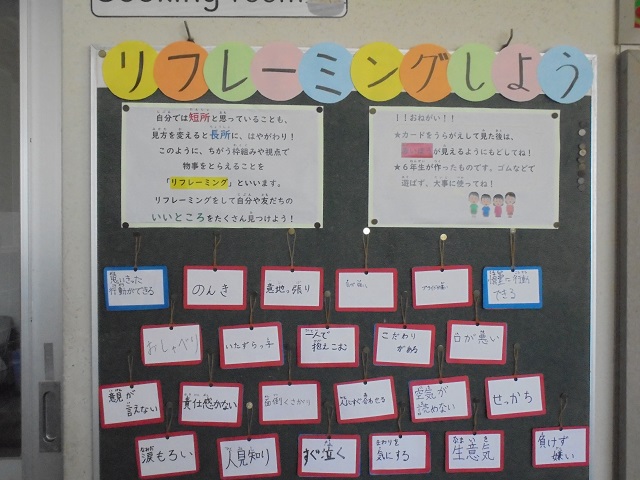 Cooking room
リフレーミングしよう
自分では短所と思っていることも、
見方を変えると長所に、はやがわり！
このように、ちがう枠組みや視点で
物事をとらえることを
「リフレーミング」といいます。
リフレーミングをして自分や友だちの
いいところをたくさん見つけよう！
！！おねがい！！
★カードをうらがえして見た後は、
が見えるようにもどしてね！
★６年生が作ったものです。ゴムなどで
遊ばず、大事に使ってね！
思いきった
行動ができる
のんき
意地っ張り
できる
おしゃべり
いたずらっ子
一人で
抱えこむ
こだわり
がある
口が悪い
意見が
言えない
責任感がない
空気が
読めない
せっかち
涙もろい
人見知り
すぐ泣く
まわりを
気にする
生意気
負けず
嫌い